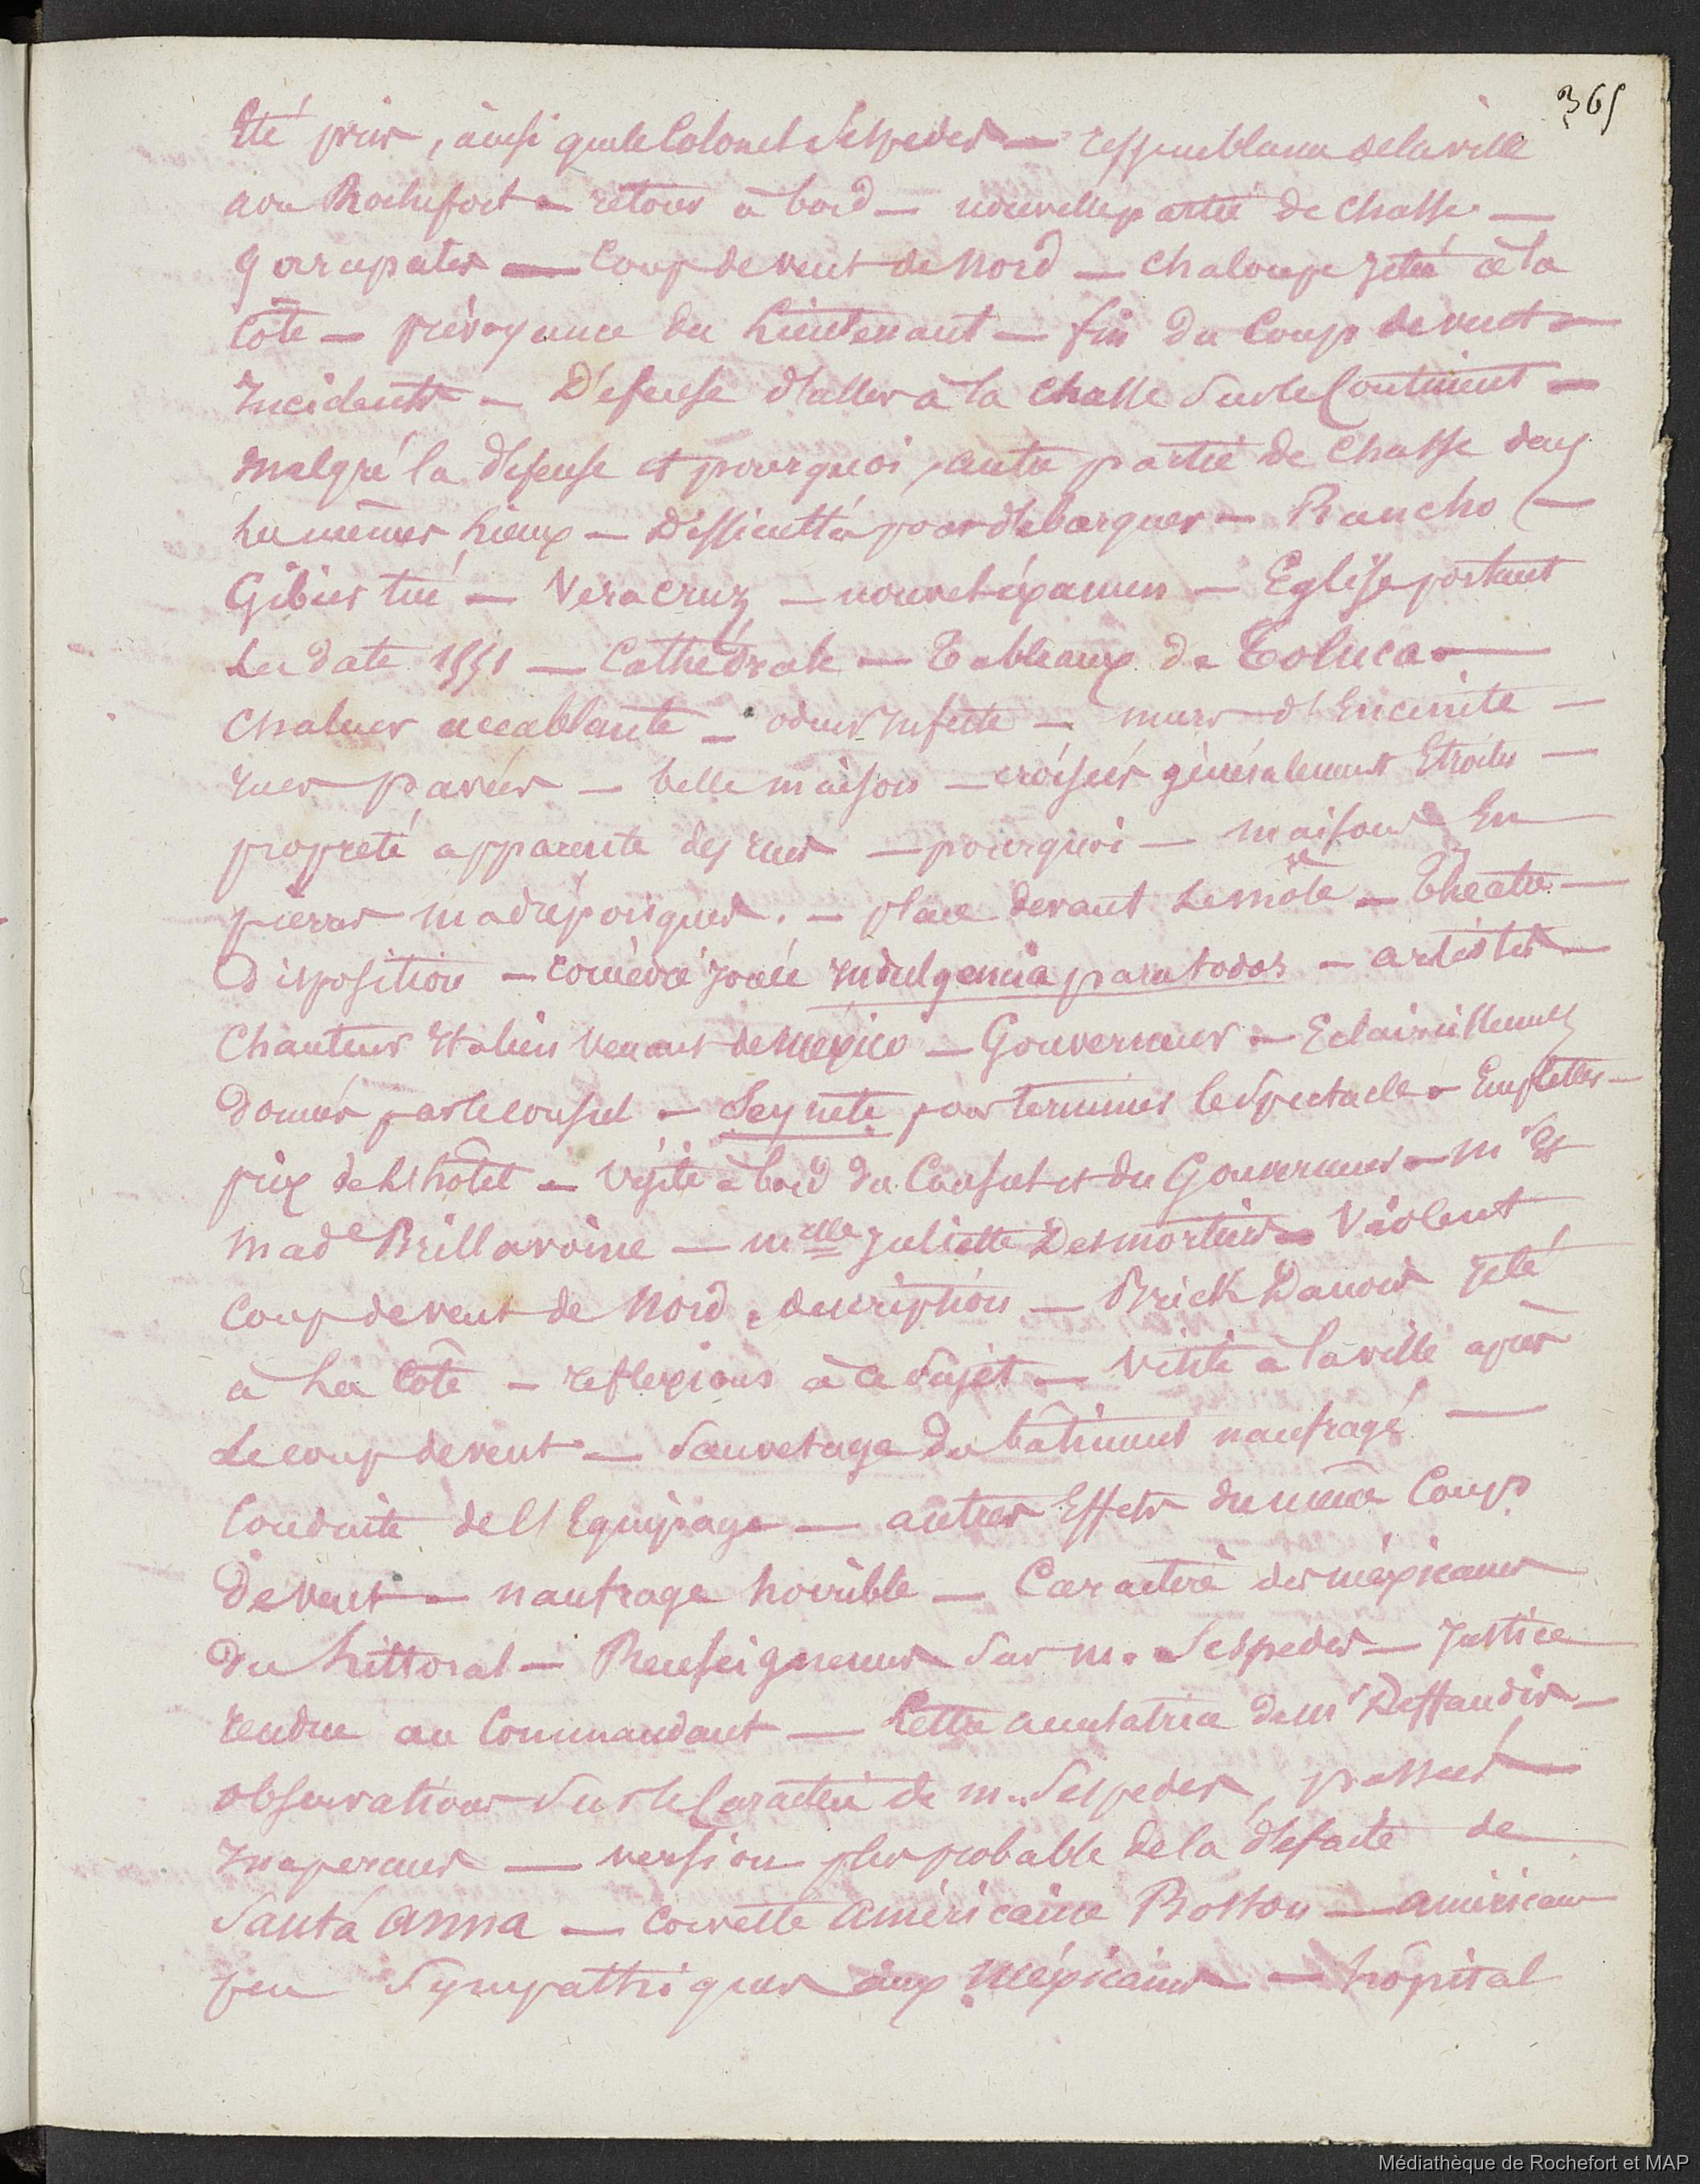 365
Eté pris, ainsi que le Colonel Sespedes — ressemblance de la ville
avec Rochefort — retour à bord — nouvelle partie de chasse —
garrapates — Coup de vent de Nord — chaloupe jetée à la
Côte — prévoyance du Lieutenant — fin du Coup de vent —
Incidents — Défense d'aller à la chasse sur le Continent —
malgré la défense et pourquoi, autre partie de chasse dans
les mêmes lieux — Difficultés pour débarquer — Rancho —
Gibier tué — Veracruz — nouvel éxamen — Eglise portant
la date 1551 — Cathédrale — Tableaux de Toluca —
chaleur accablante — odeur infecte — murs d'Enceinte —
rues pavées — belle maison — croisées généralement Etroites —
propreté apparente des rues — pourquoi — maisons En
pierres madréporiques. — place devant le môle — Théâtre —
Disposition — comédie jouée Indulgencia para todos — artistes —
Chanteurs Italien venant de méxico — Gouverneur — Eclaircissements
donnés par le consul — Seynete pour terminer le Spectacle — Emplettes —
prix de l'hôtel — visite à bord du Consul et du Gouverneur — mr Et
made Brillavoine — melle Juliette Desmortiers — Violent
Coup de vent de Nord. description — Brick Danois jeté
à la Côte — reflexions à ce Sujet — visite à la ville après
le coup de vent — Sauvetage du bâtiment naufragé —
Conduite de l'Equipage — autres Effets du même Coup
de vent — naufrage horrible — Caractère des méxicains
du Littoral — Renseignemens sur m. Sespedes — Justice
rendue au Commandant — Lettre accusatrice de mr Deffaudis —
observations sur le Caractère de m. Sespedes, passées
Inaperçues — version plus probable de la défaite de
Santa Anna — Corvette américaine Boston — américains
peu Sympathiques aux méxicains — hôpital
Médiathèque de Rochefort et MAP